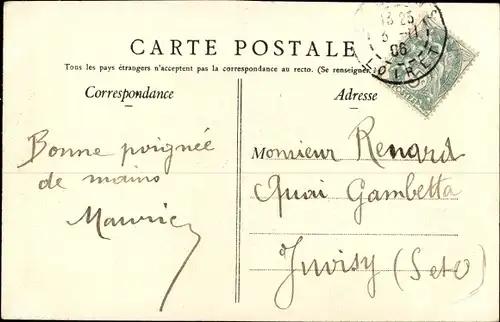 13 25
6 - 11
06
LOIRET
CARTE POSTALE
Tous les pays étrangers n'acceptent pas la correspondance au recto. (Se renseigner
Correspondance
Adresse
Bonne poignée
de mains
Maurice
Monsieur Renard
Quai Gambetta
Juvisy (S et O)